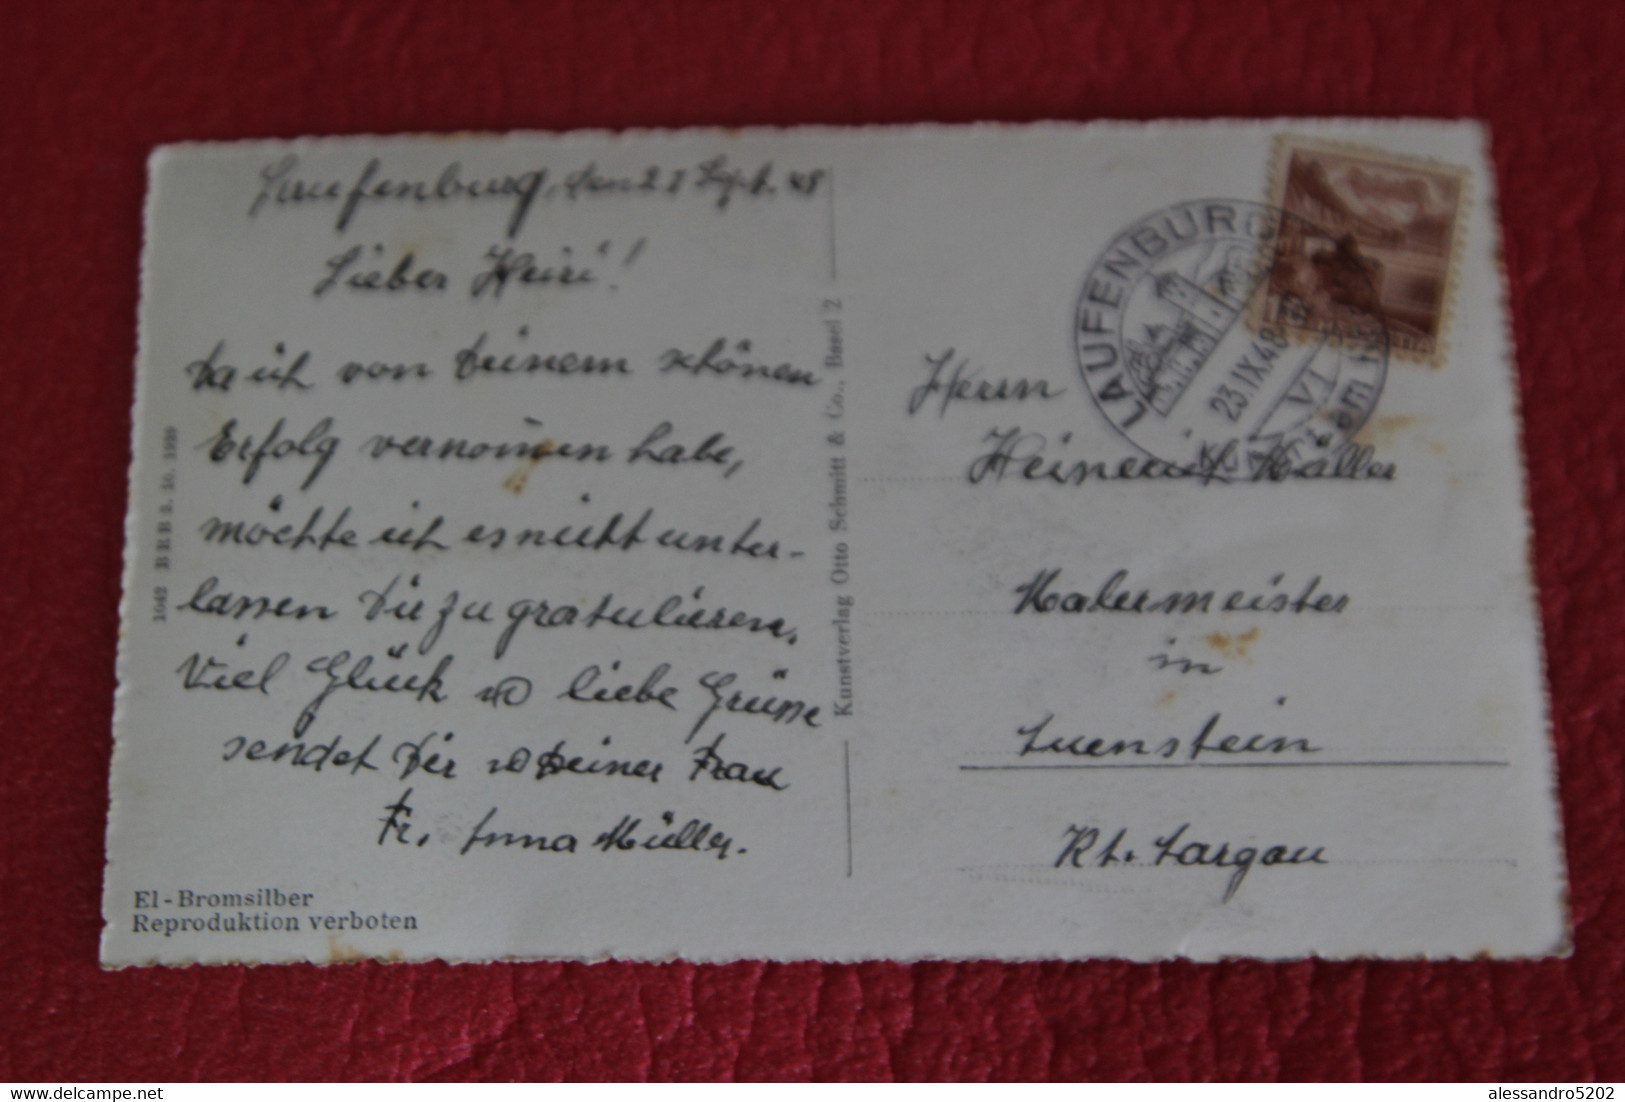 Laufenburg, den 22 Sept. 48
Lieber Heiri!
Da ich von Deinem schönen
Erfolg vernomen habe,
möchte ich es nicht unter-
lassen Dir zu gratulieren.
Viel Glück liebe Grüsse
sendet Dir Deiner Frau
Fr. Anna Müller.
El-Bromsilber
Reproduktion verboten
1042 BRB 3. 10. 1929
Kunstverlag Otto Schmitt & Co., Basel 2
LAUFENBURG
23.IX.48
VI
Herrn
Heinerich Müller
Malermeister
in
Auenstein
Kt. Aargau
alessandro5202